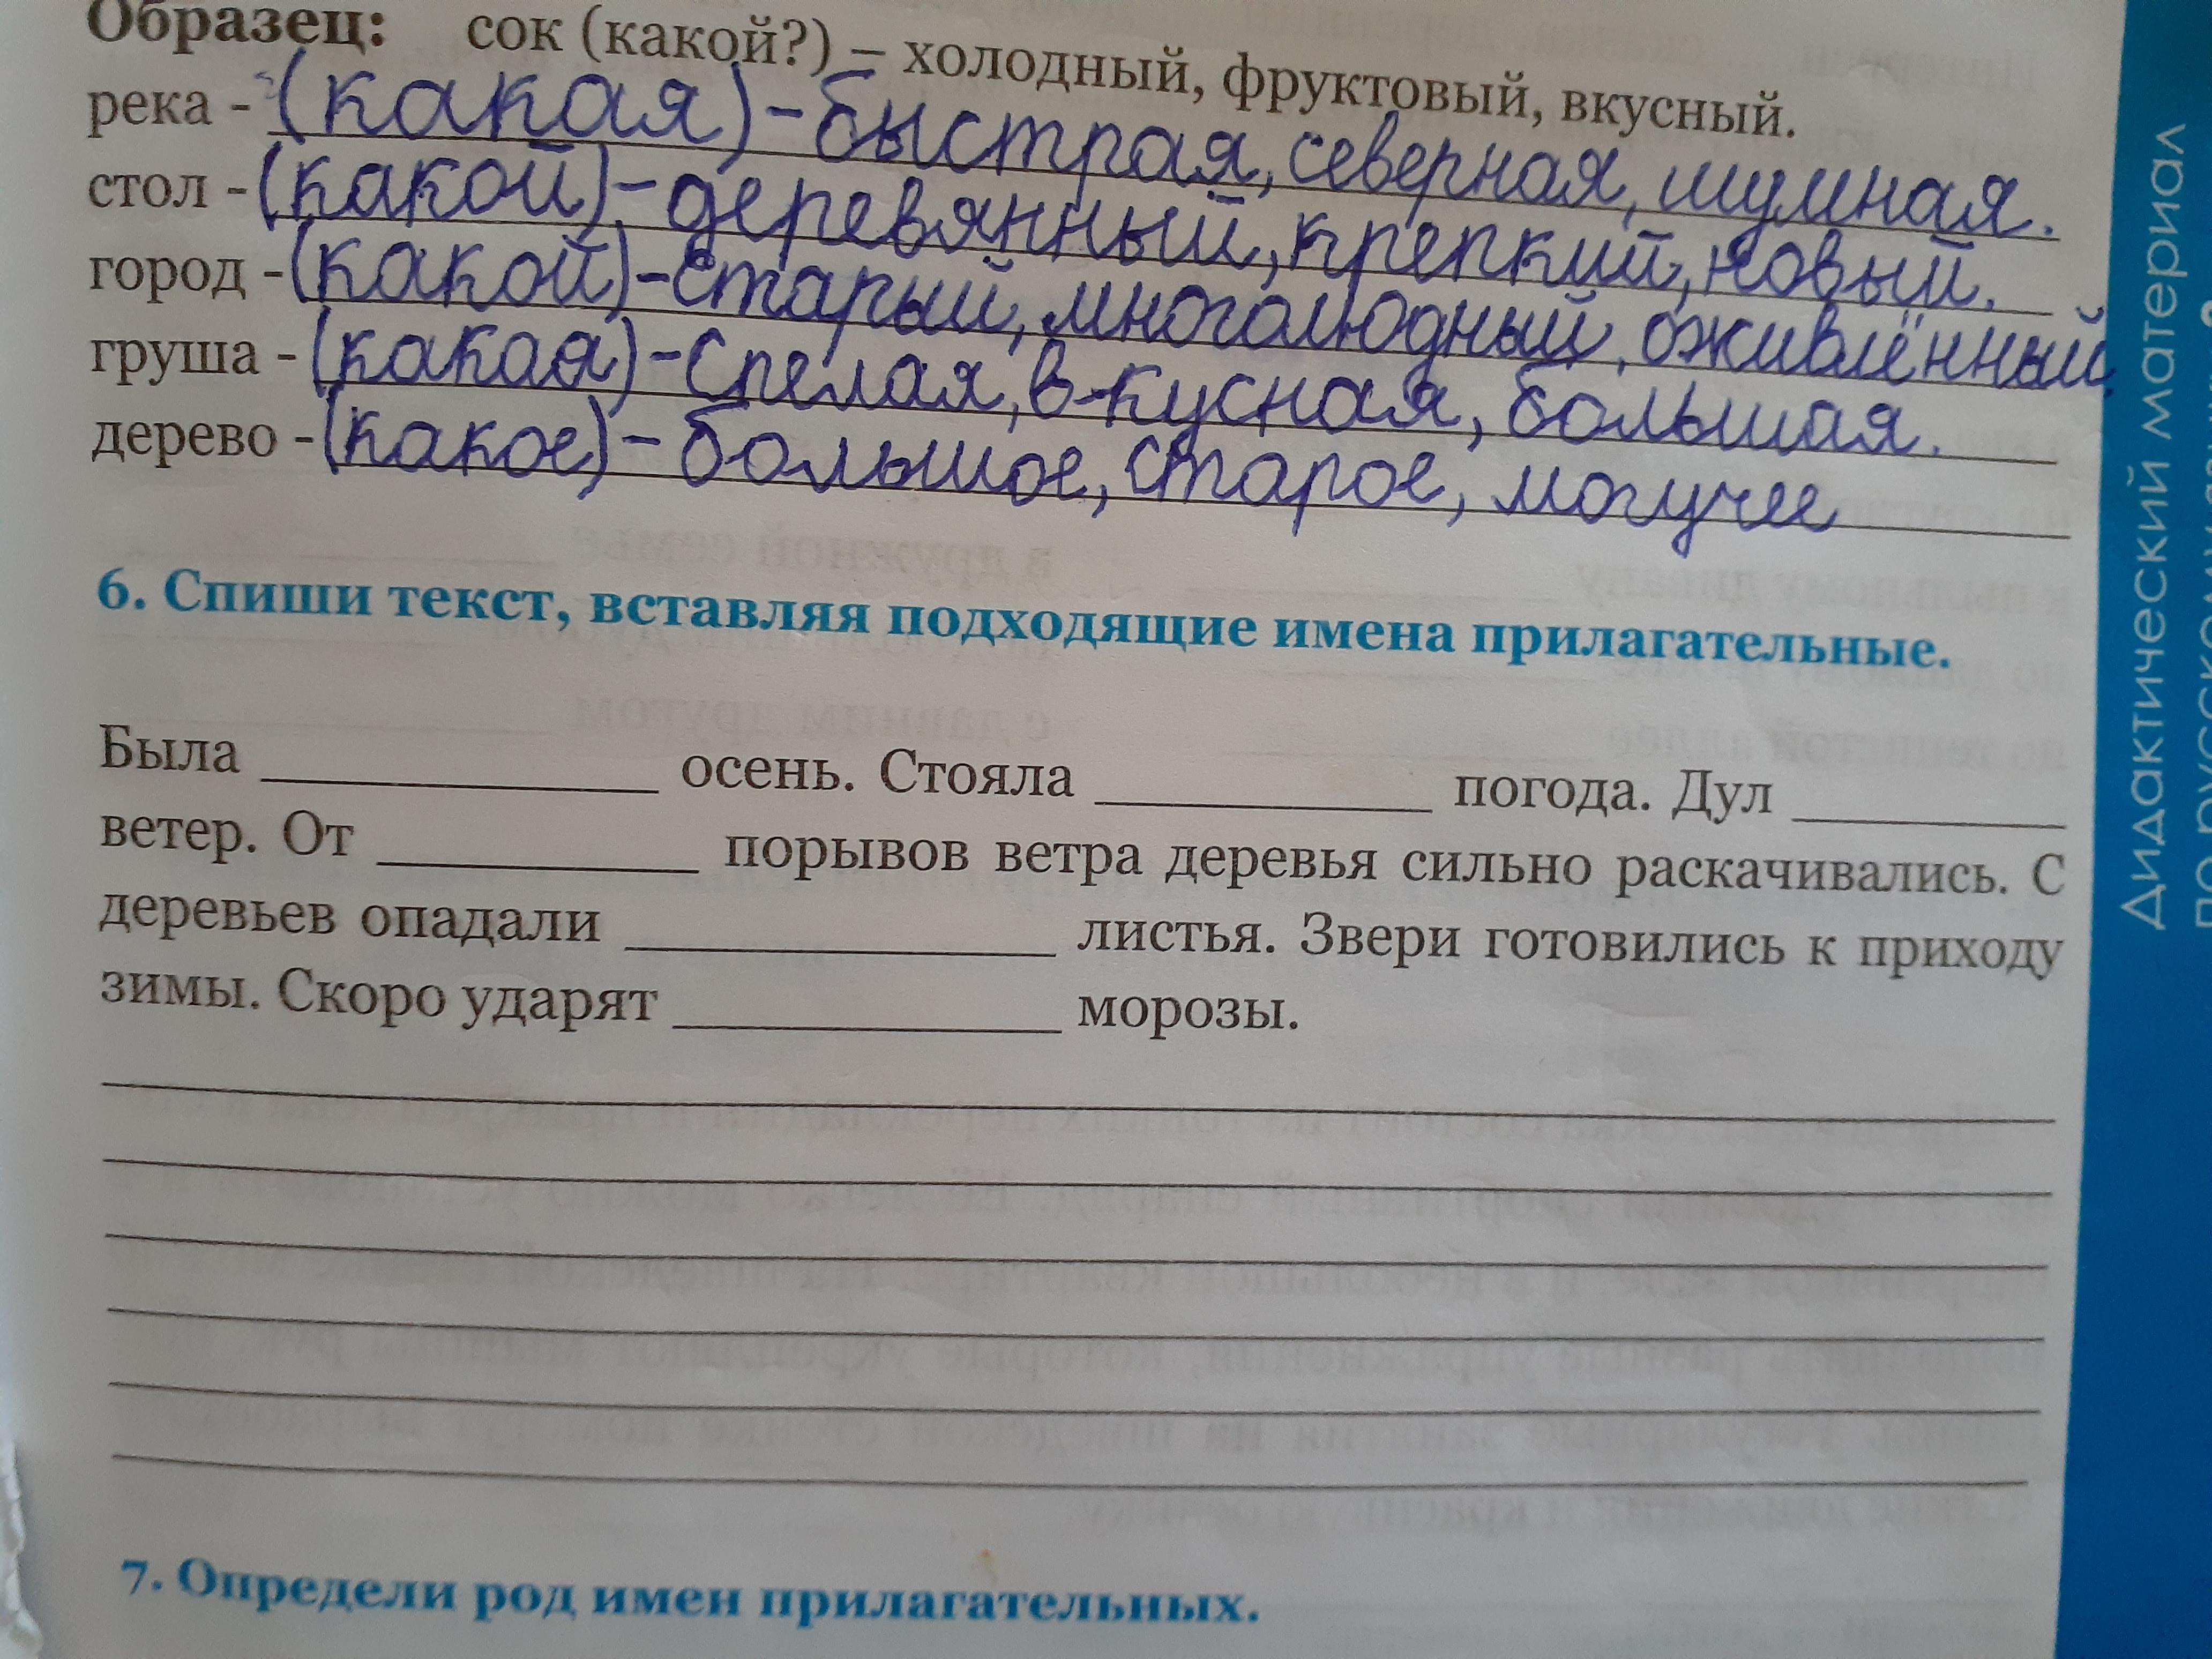 Образец: сок (какой?) – холодный, фруктовый, вкусный.
река - (какая) - быстрая, северная, шумная.
стол - (какой) - деревянный, крепкий, новый.
город - (какой) - старый, многолюдный, оживлённый.
груша - (какая) - спелая, в-кусная, большая.
дерево - (какое) - большое, старое, могучее
6. Спиши текст, вставляя подходящие имена прилагательные.
Была ____________ осень. Стояла ____________ погода. Дул ____________
ветер. От ____________ порывов ветра деревья сильно раскачивались. С
деревьев опадали ____________ листья. Звери готовились к приходу
зимы. Скоро ударят ____________ морозы.
7. Определи род имен прилагательных.
Дидактический материал
по русскому